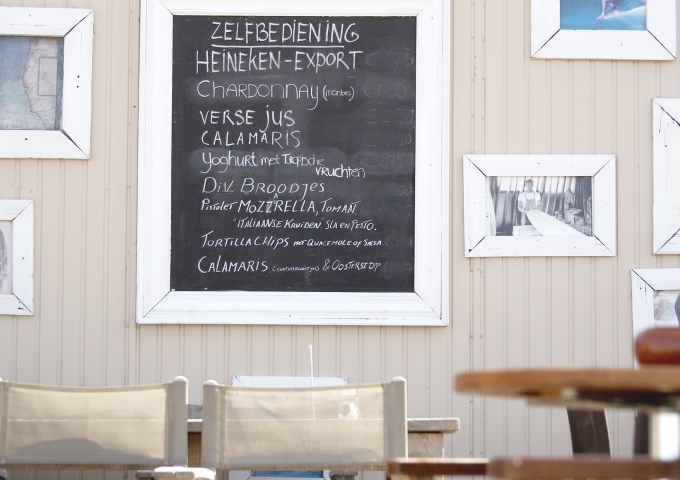 ZELFBEDIENING
HEINEKEN-EXPORT
CHARDONNAY (montes)
VERSE JUS
CALAMARIS
Yoghurt met Tropische
VRUCHTEN
Div. BROODJES
Pistolet MOZZARELLA, TOMAAT
"ITALIAANSE KRUIDEN" SLA EN PESTO.
TORTILLA CHIPS MET GUACEMOLE OF SALSA
CALAMARIS & OOSTERSE DIP